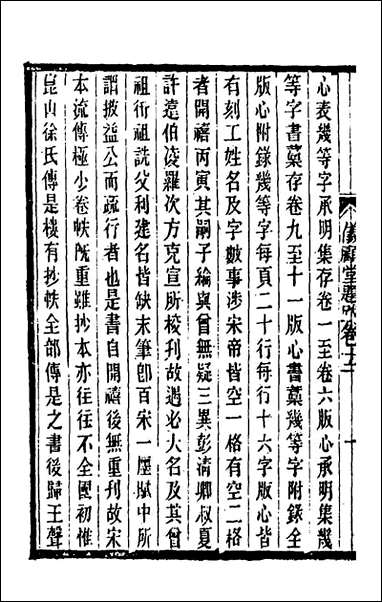 心表幾等字承明集存卷一至卷六版心承明集幾
等字書藁存卷九至十一版心書藁幾等字附錄全
版心附錄幾等字每頁二十行每行十六字版心皆
有刻工姓名及字數事涉宋帝皆空一格有空二格
者開禧丙寅其嗣子綸與曾無疑三異彭清卿叔夏
許遠伯淩羅次方克宣所校刊故遇必大名及其曾
祖衎祖詵父利建名皆缺末筆卽百宋一廛賦中所
謂披益公而疏行者也是書自開禧後無重刊故宋
本流傳極少卷帙旣重雖抄本亦往往不全國初惟
崑山徐氏傳是樓有抄帙全部傳是之書後歸王聲
儀顧堂題跋卷十二
十